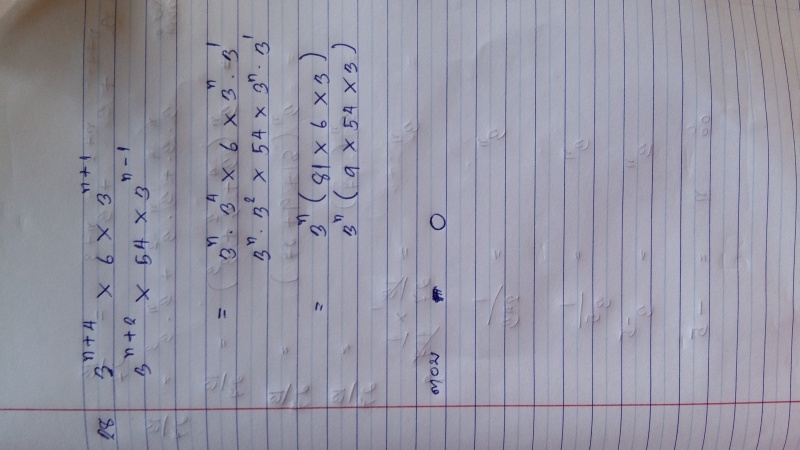 28 3ⁿ⁺⁴ × 6 × 3ⁿ⁺¹
3ⁿ⁺² × 54 × 3ⁿ⁻¹
= 3ⁿ · 3⁴ × 6 × 3ⁿ · 3¹
3ⁿ · 3² × 54 × 3ⁿ · 3¹
= 3ⁿ ( 81 × 6 × 3 )
3ⁿ ( 9 × 54 × 3 )
0